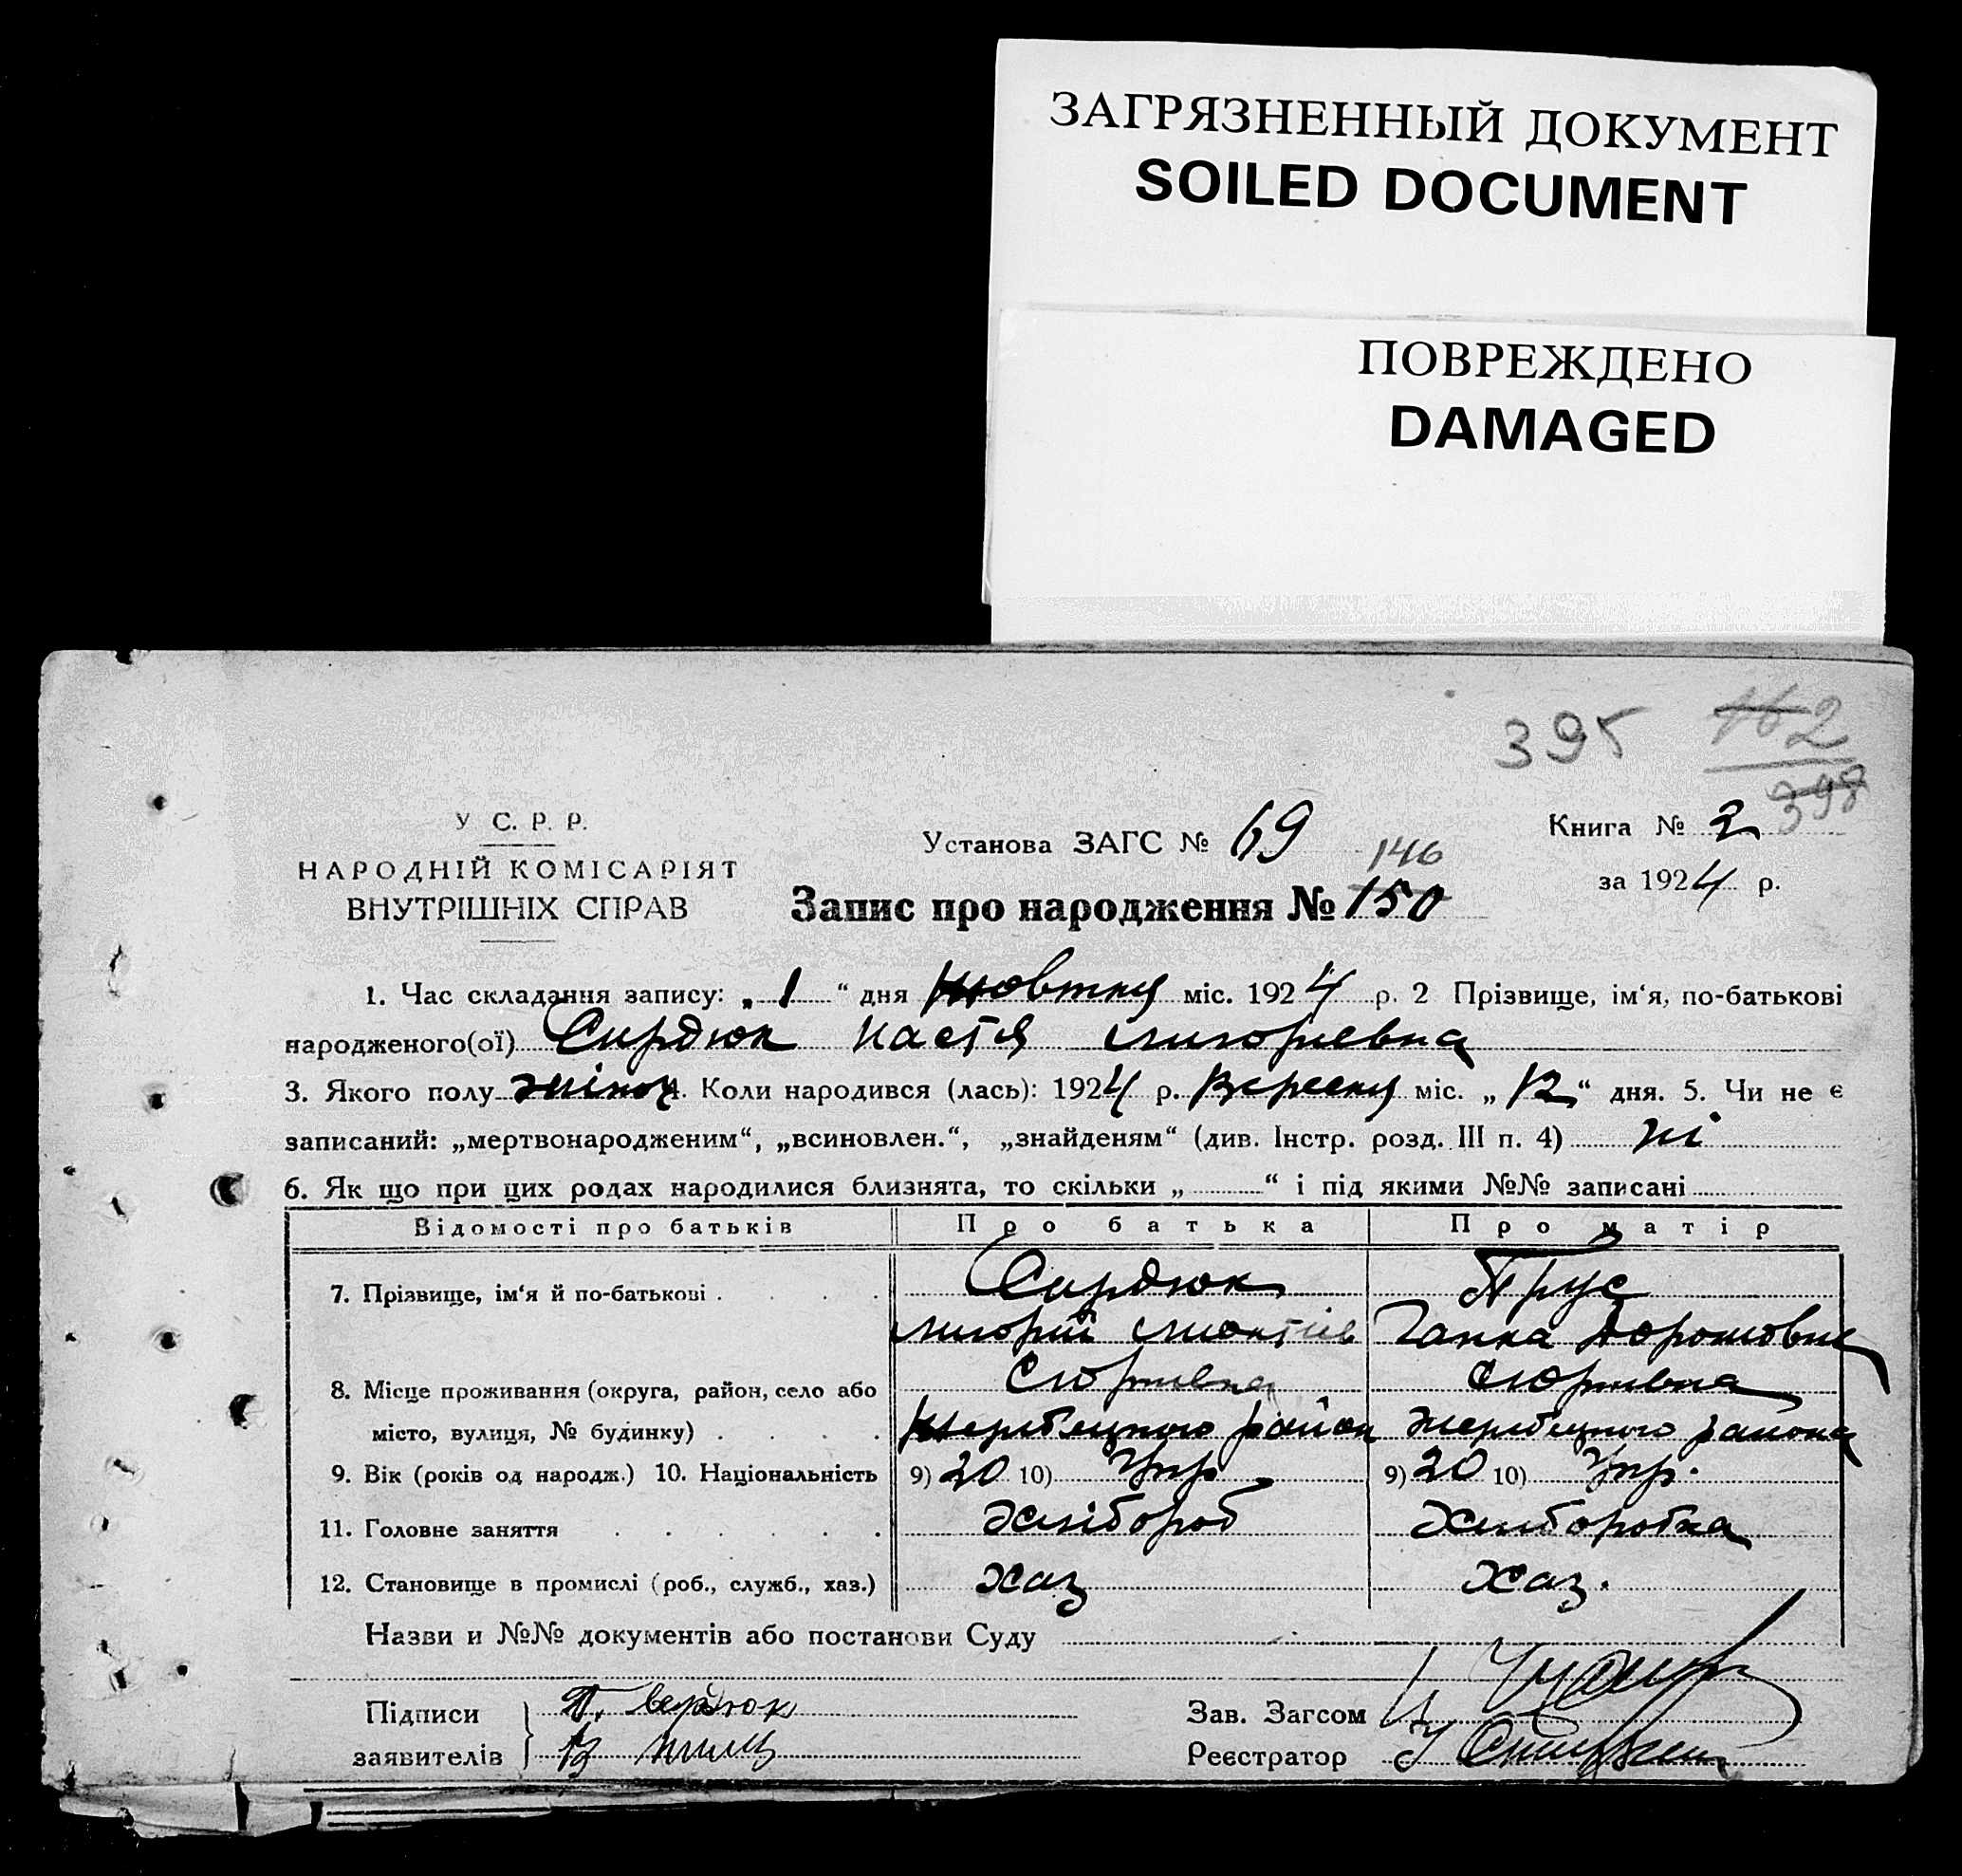 ЗАГРЯЗНЕННЫЙ ДОКУМЕНТ
SOILED DOCUMENT
ПОВРЕЖДЕНО
DAMAGED
395 162
398
У С. Р. Р.
НАРОДНІЙ КОМІСАРІЯТ
ВНУТРІШНІХ СПРАВ
Установа ЗАГС № 69
Книга № 2
за 1924 р.
146
Запис про народження № 150
1. Час складання запису: „ 1 “ дня жовтня міс. 1924 р. 2 Прізвище, ім‘я, по-батькові
народженого(ої) Сирдюк Настя
3. Якого полу жіноч 4. Коли народився (лась): 1924 р. Вересня міс. „ 12 “ дня. 5. Чи не є
записаний: „мертвонародженим“, „всиновлен.“, „знайденям“ (див. Інстр. розд. III п. 4) ні
6. Як що при цих родах народилися близнята, то скільки „ “ і під якими №№ записані
Відомості про батьків Про батька Про матір
7. Прізвище, ім‘я й по-батькові Сирдюк Прус
Ганна Дорошовна
8. Місце проживання (округа, район, село або
місто, вулиця, № будинку) Жеребецкого район Жеребецкого района
9. Вік (років од народж.) 10. Національність 9) 20 10) Укр 9) 20 10) Укр.
11. Головне заняття Хлібороб Хлиборобка
12. Становище в промислі (роб., служб., хаз.) Хаз Хаз.
Назви и №№ документів або постанови Суду
Підписи Сердюк Зав. Загсом
заявителів Реєстратор